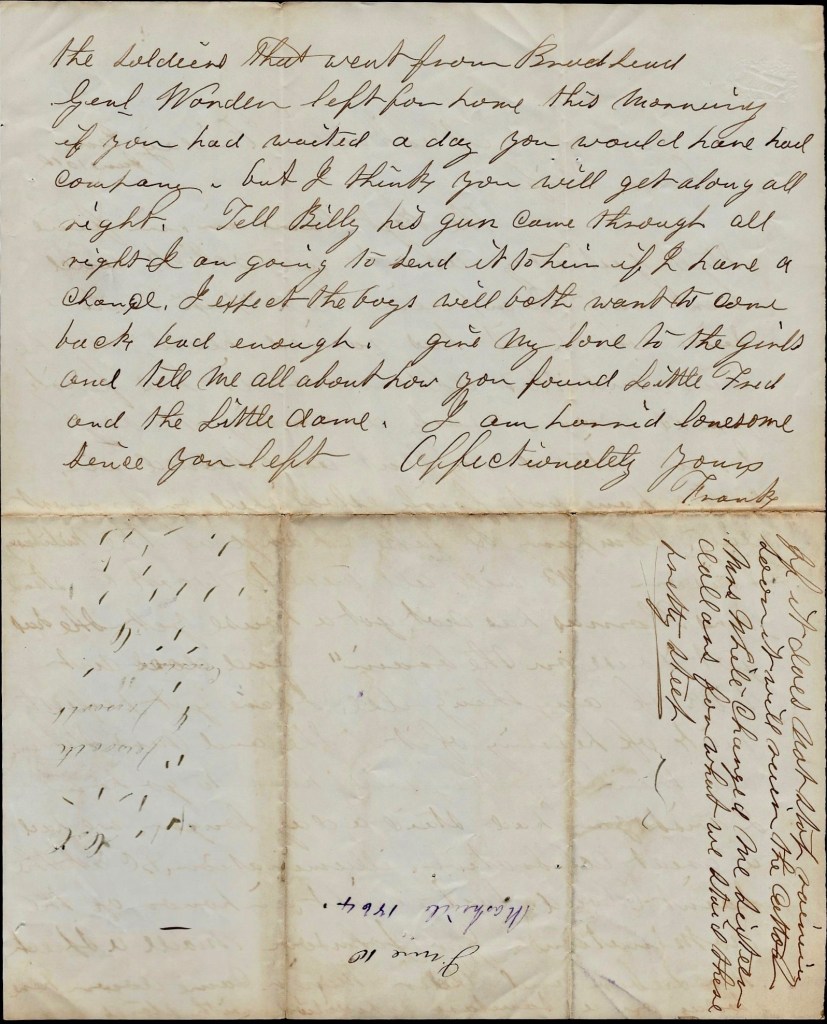 the soldiers that went from Broadhead
Genl Warden left for home this morning
if you had waited a day you would have had
company. but I think you will get along all
right. Tell Billy his gun came through all
right I am going to send it to him if I have a
chance. I expect the boys will both want to come
back bad enough. give my love to the girls
and tell me all about how you found Little Fred
and the Little dame. I am horrid lonesome
sence you left Affectionately yours
Frank
If it does not stop raining
soon it will ruin the cotton
Mrs White Charged me sixteen
dollars for what we staid there
pretty steep
June 10
1864.